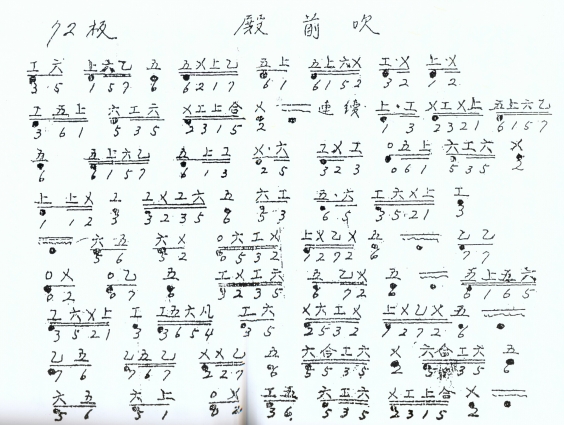 72板 殿前吹
工六 上六乙 五 五乂上乙 五上 五上六乂 工·乂 上·乂
3 5 1 5 7 6 6 2 1 7 6 1 6 1 5 2 3 2 1 2
工 五上 六工六 乂工上合 乂 連续 上·工 乂工乂上 五上六乙
3 6 1 5 3 5 2 3 1 5 2 1 3 2 3 2 1 6 1 5 7
五 五上六乙 五 上工 乂·六 工乂工 0五上 六工六 乂
6 6 1 5 7 6 1 3 2 5 3 2 3 0 6 1 5 3 5 2
上 上乂 工 工乂工六 五 六工 五·六 工六乂上 工
1 1 2 3 3 2 3 5 6 5 3 6 5 3 5 2 1 3
六五 六乂 0六工乂 上乂乙乂 五 乙乙
5 6 5 2 0 5 3 2 1 2 7 2 6 7 7
0乂 0乙 五 工乂工六 五 乙乂 五 五上五六
0 2 0 7 6 3 2 3 5 6 7 2 6 6 1 6 5
工六乂上 工 工五六凡 工六 乂六工乂 上乂乙乂 五
3 5 2 1 3 3 6 5 4 3 5 2 5 3 2 6
乙五 乙五乙 乂乂乙 五 六合工六 乂 六合工六 五
7 6 7 6 7 2 2 7 6 5 5 3 5 2 5 5 3 5 6
六五 六上 0乂 工五 六工六 乂工上合 乂
5 6 5 1 0 2 3 6 5 3 5 2 3 1 5 2